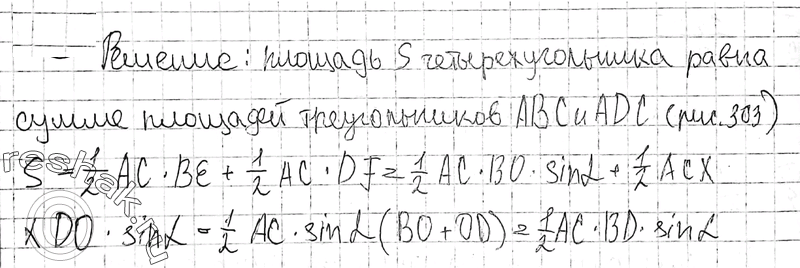 — Решение: площадь S четырехугольника равна
сумме площадей треугольников ABC и ADC (рис. 303)
S = 1/2 AC · BE + 1/2 AC · DF = 1/2 AC · BO · sinα + 1/2 AC ×
× DO · sinα = 1/2 AC · sinα (BO + OD) = 1/2 AC · BD · sinα
reshak.ru